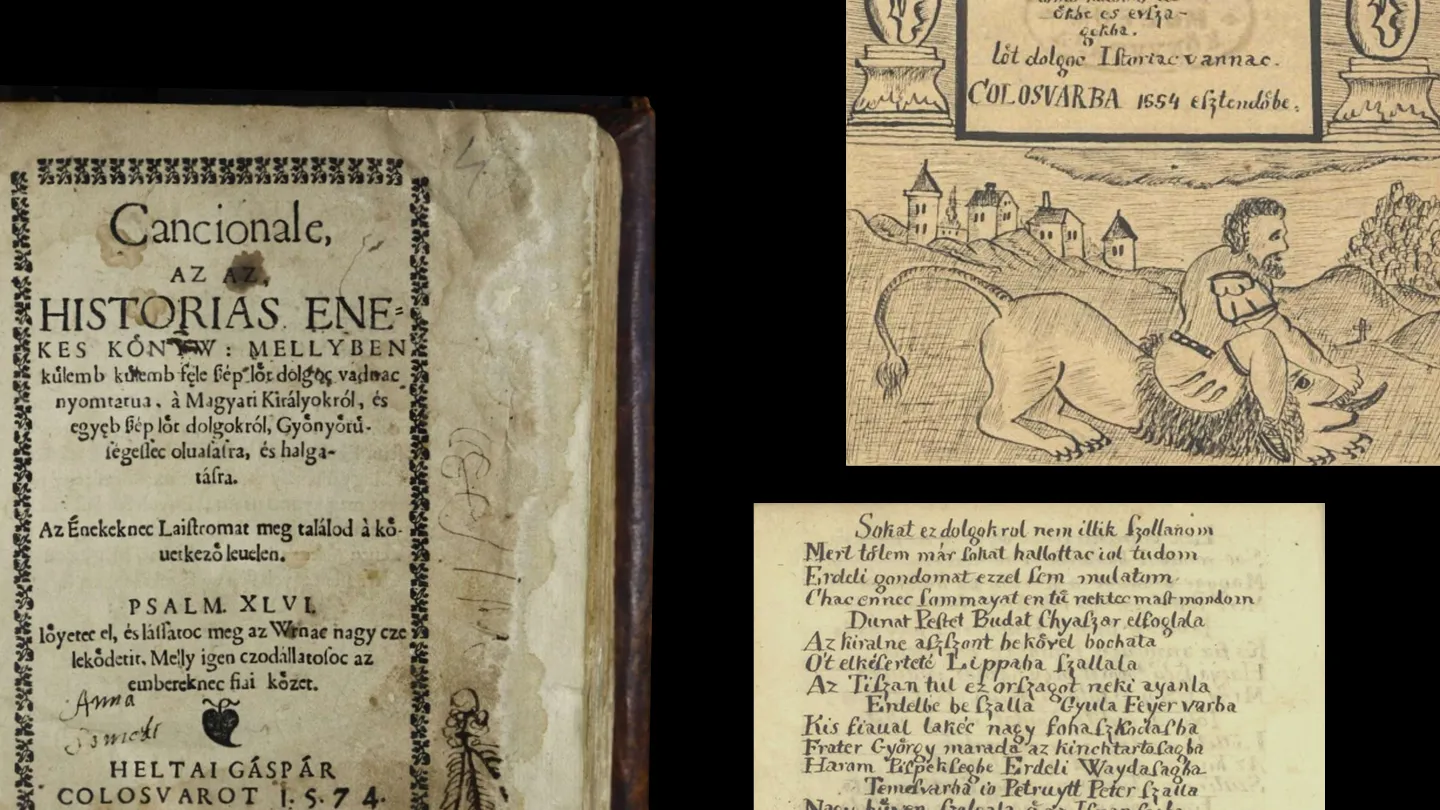 Cancionale,
AZ AZ,
HISTORIAS ENE=
KES KŐNYW: MELLYBEN
kůlemb kůlemb fęle ßép lőt dolgoc vadnac
nyomtatua, à Magyari Királyokról, és
egyęb ßép lőt dolgokról, Győnyőrů-
ſégeſſec oluaſaſra, és halga-
táſra.
Az Énekeknec Laiſtromat meg találod à kő-
uetkező leuelen.
PSALM. XLVI.
Iőyetec el, és láſſatoc meg az Wrnac nagy cze
lekődetit. Melly igen czodállatoſoc az
embereknec fiai kőzet.
Anna
HELTAI GÁSPÁR
COLOSVAROT 1.5.74.
őkbe es evſza-
gokba.
lőt dolgoc Iſtoriac vannac.
COLOSVARBA 1554 eſztendőbe.
Sokat ez dolgokrol nem illik ſzollanom
Mert tőlem már ſokat hallottac iol tudom
Erdeli gondomat ezzel ſem mulatom
Chac ennec ſommayat en tů nektec maſt mondom
Dunat Peſtet Budat Chyaſzar elfoglala
Az kiralne aſzſzont bekővel bochata
Őt elkiſerteté Lippaba ſzallala
Az Tiſzan tul ez orſzagot neki ayanla
Erdelbe be ſzalla Gyula Feyer varba
Kis fiaual lakéc nagy fohaſzkodaſba
Frater György marada az kinchtartoſagba
Haram Piſpekſegbe Erdeli WaydaSagba
Temeſvarba io Petruytt Peter ſzalla